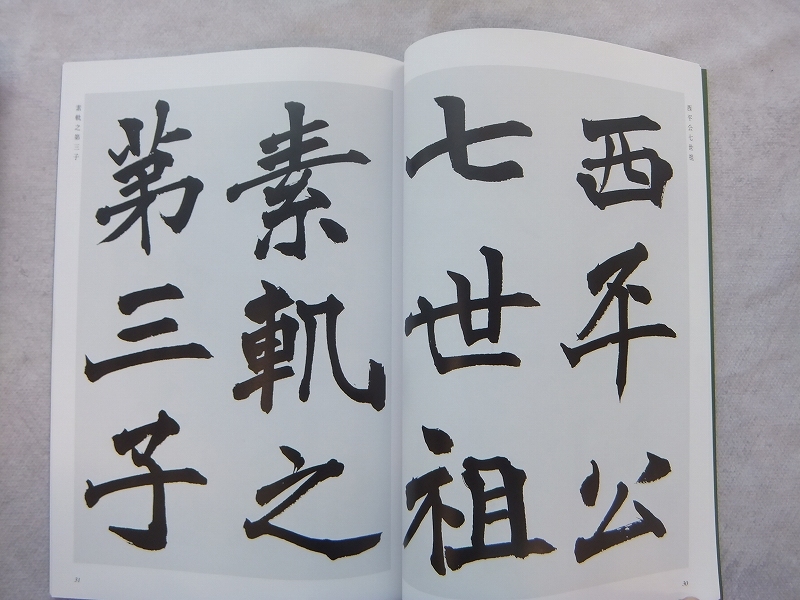 西平公七世祖
西平公
七世祖
30
素軌之
第三子
素軌之第三子
31